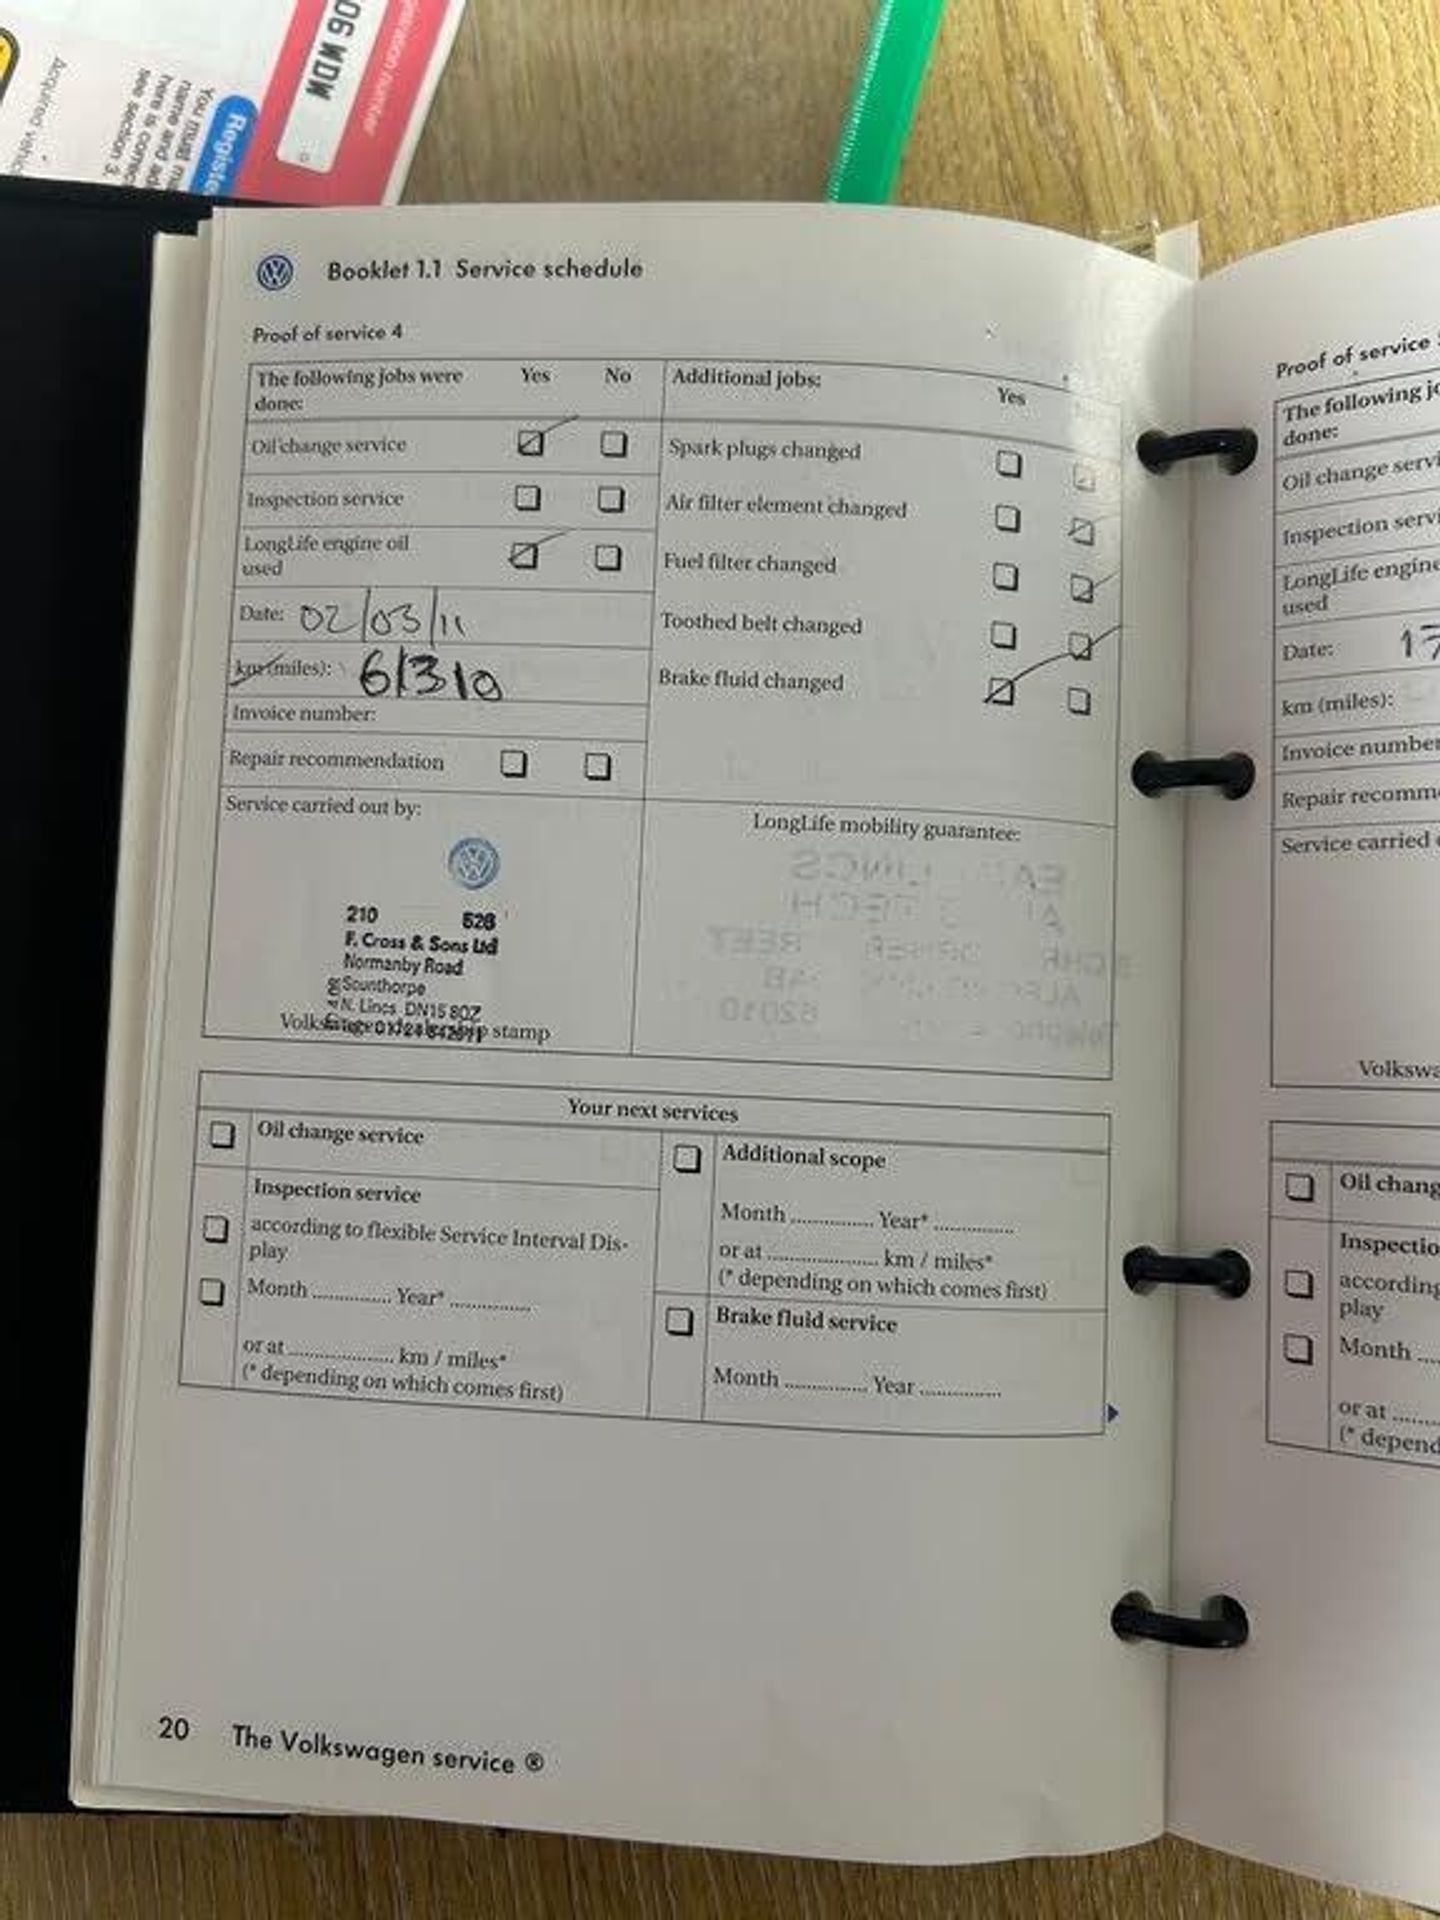 06 WDW
Registe
You must
name and ad
here is correc
see section 3.
Acquired vehic
Booklet 1.1 Service schedule
Proof of service 4
The following jobs were done: Yes No
Additional jobs: Yes
Oil change service
Inspection service
LongLife engine oil used
Date: 02/03/11
km (miles): 61310
Invoice number:
Repair recommendation
Spark plugs changed
Air filter element changed
Fuel filter changed
Toothed belt changed
Brake fluid changed
Service carried out by:
210 526
F. Cross & Sons Ltd
Normanby Road
Scunthorpe
N. Lincs DN15 8QZ
stamp
LongLife mobility guarantee:
Your next services
Oil change service
Inspection service
according to flexible Service Interval Dis-
play
Month ............... Year* ...............
or at .................... km / miles*
(* depending on which comes first)
Additional scope
Month ............... Year* ...............
or at .................... km / miles*
(* depending on which comes first)
Brake fluid service
Month ............... Year ...............
20 The Volkswagen service ®
Proof of service
The following jo
done:
Oil change servi
Inspection servi
LongLife engine
used
Date: 17
km (miles):
Invoice number
Repair recomm
Service carried
Volkswa
Oil chang
Inspectio
according
play
Month ....
or at ......
(* depend